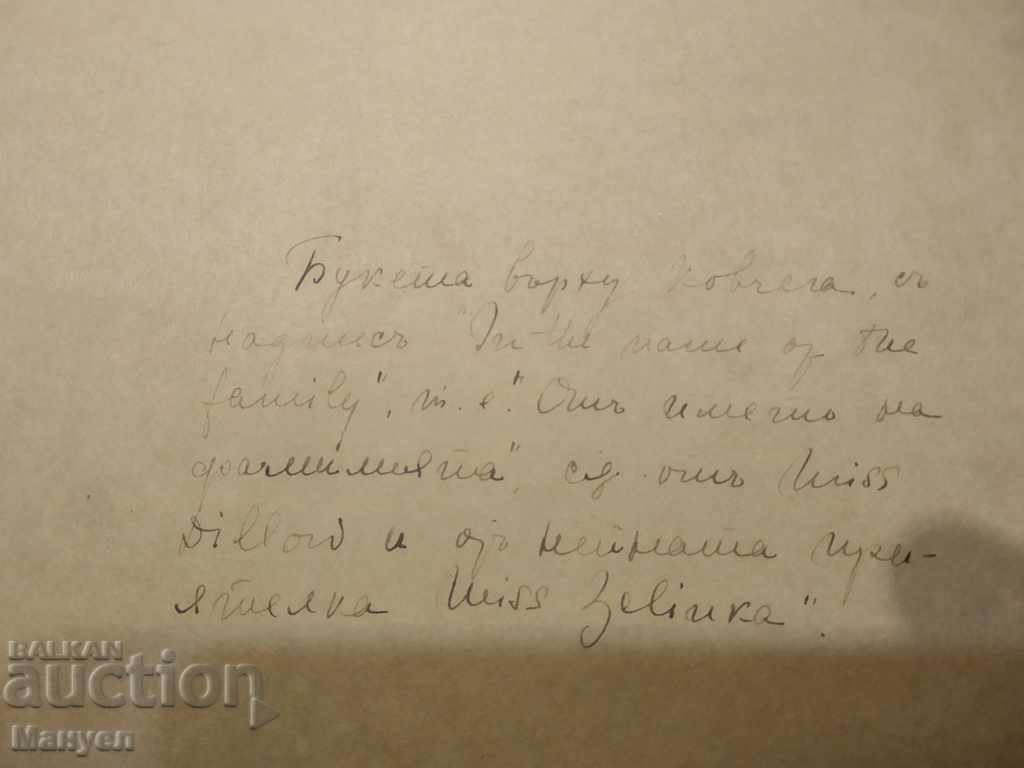 Букета върху ковчега, съ
надписъ "In the name of the
family", т.е. "Отъ името на
фамилията", сѫ отъ Miss
и отъ нейната при-
ятелка Miss Zelinka".
BALKAN
auction
Maryen